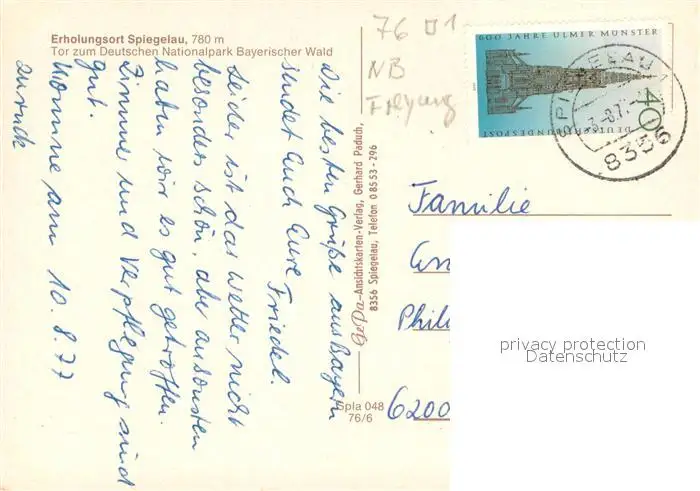 Erholungsort Spiegelau, 780 m
Tor zum Deutschen Nationalpark Bayerischer Wald
76 01
NB
Freyung
600 JAHRE ULMER MÜNSTER
40
DEUTSCHE BUNDESPOST
SPIEGELAU 1
8356
Die besten Grüße aus Bayern
sendet Euch Eure
Friedel.
Leider ist das Wetter nicht
besonders schön, aber ansonsten
haben wir es gut getroffen.
Zimmer und Verpflegung sind
gut.
Komme am 10.8.77
zurück
GePa-Ansichtskarten-Verlag, Gerhard Paduch,
8356 Spiegelau, Telefon 08553-296
Spla 048
76/6
Familie
Phil
6200
privacy protection
Datenschutz